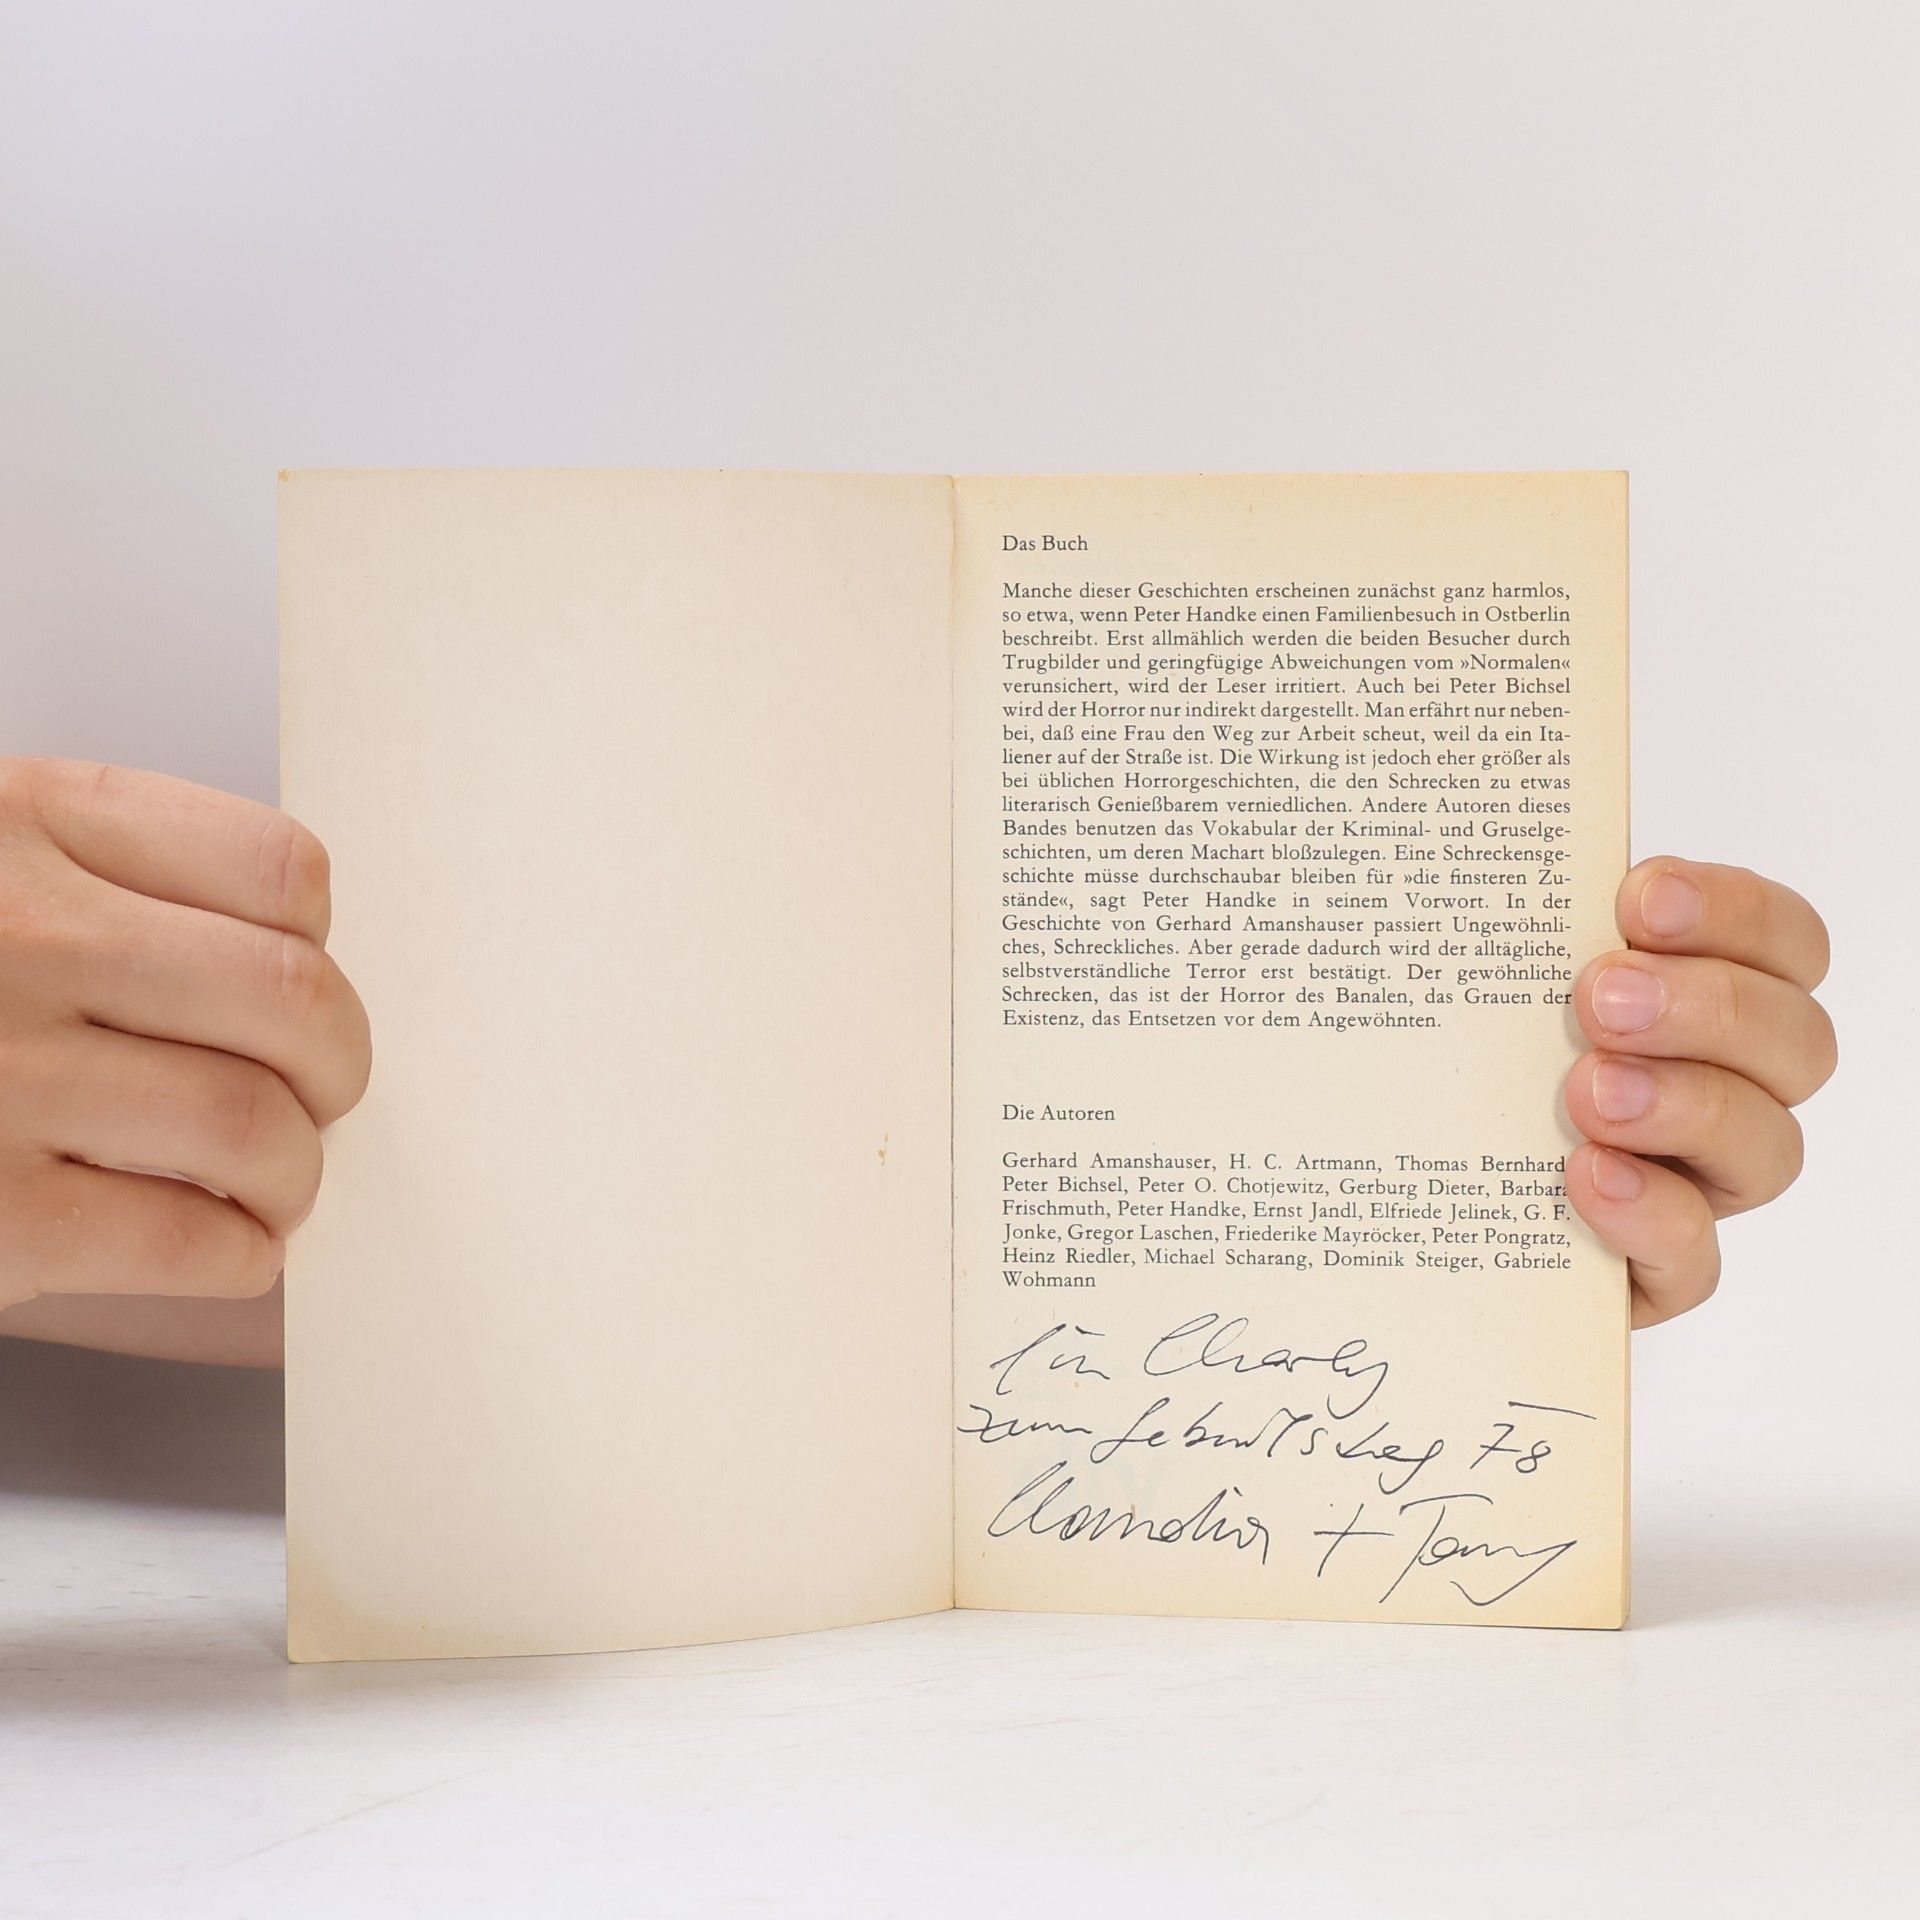 Das Buch
Manche dieser Geschichten erscheinen zunächst ganz harmlos,
so etwa, wenn Peter Handke einen Familienbesuch in Ostberlin
beschreibt. Erst allmählich werden die beiden Besucher durch
Trugbilder und geringfügige Abweichungen vom »Normalen«
verunsichert, wird der Leser irritiert. Auch bei Peter Bichsel
wird der Horror nur indirekt dargestellt. Man erfährt nur neben-
bei, daß eine Frau den Weg zur Arbeit scheut, weil da ein Ita-
liener auf der Straße ist. Die Wirkung ist jedoch eher größer als
bei üblichen Horrorgeschichten, die den Schrecken zu etwas
literarisch Genießbarem verniedlichen. Andere Autoren dieses
Bandes benutzen das Vokabular der Kriminal- und Gruselge-
schichten, um deren Machart bloßzulegen. Eine Schreckensge-
schichte müsse durchschaubar bleiben für »die finsteren Zu-
stände«, sagt Peter Handke in seinem Vorwort. In der
Geschichte von Gerhard Amanshauser passiert Ungewöhnli-
ches, Schreckliches. Aber gerade dadurch wird der alltägliche,
selbstverständliche Terror erst bestätigt. Der gewöhnliche
Schrecken, das ist der Horror des Banalen, das Grauen der
Existenz, das Entsetzen vor dem Angewöhnten.
Die Autoren
Gerhard Amanshauser, H. C. Artmann, Thomas Bernhard
Peter Bichsel, Peter O. Chotjewitz, Gerburg Dieter, Barbara
Frischmuth, Peter Handke, Ernst Jandl, Elfriede Jelinek, G. F.
Jonke, Gregor Laschen, Friederike Mayröcker, Peter Pongratz,
Heinz Riedler, Michael Scharang, Dominik Steiger, Gabriele
Wohmann
für Charly
zum Geburtstag 78
+